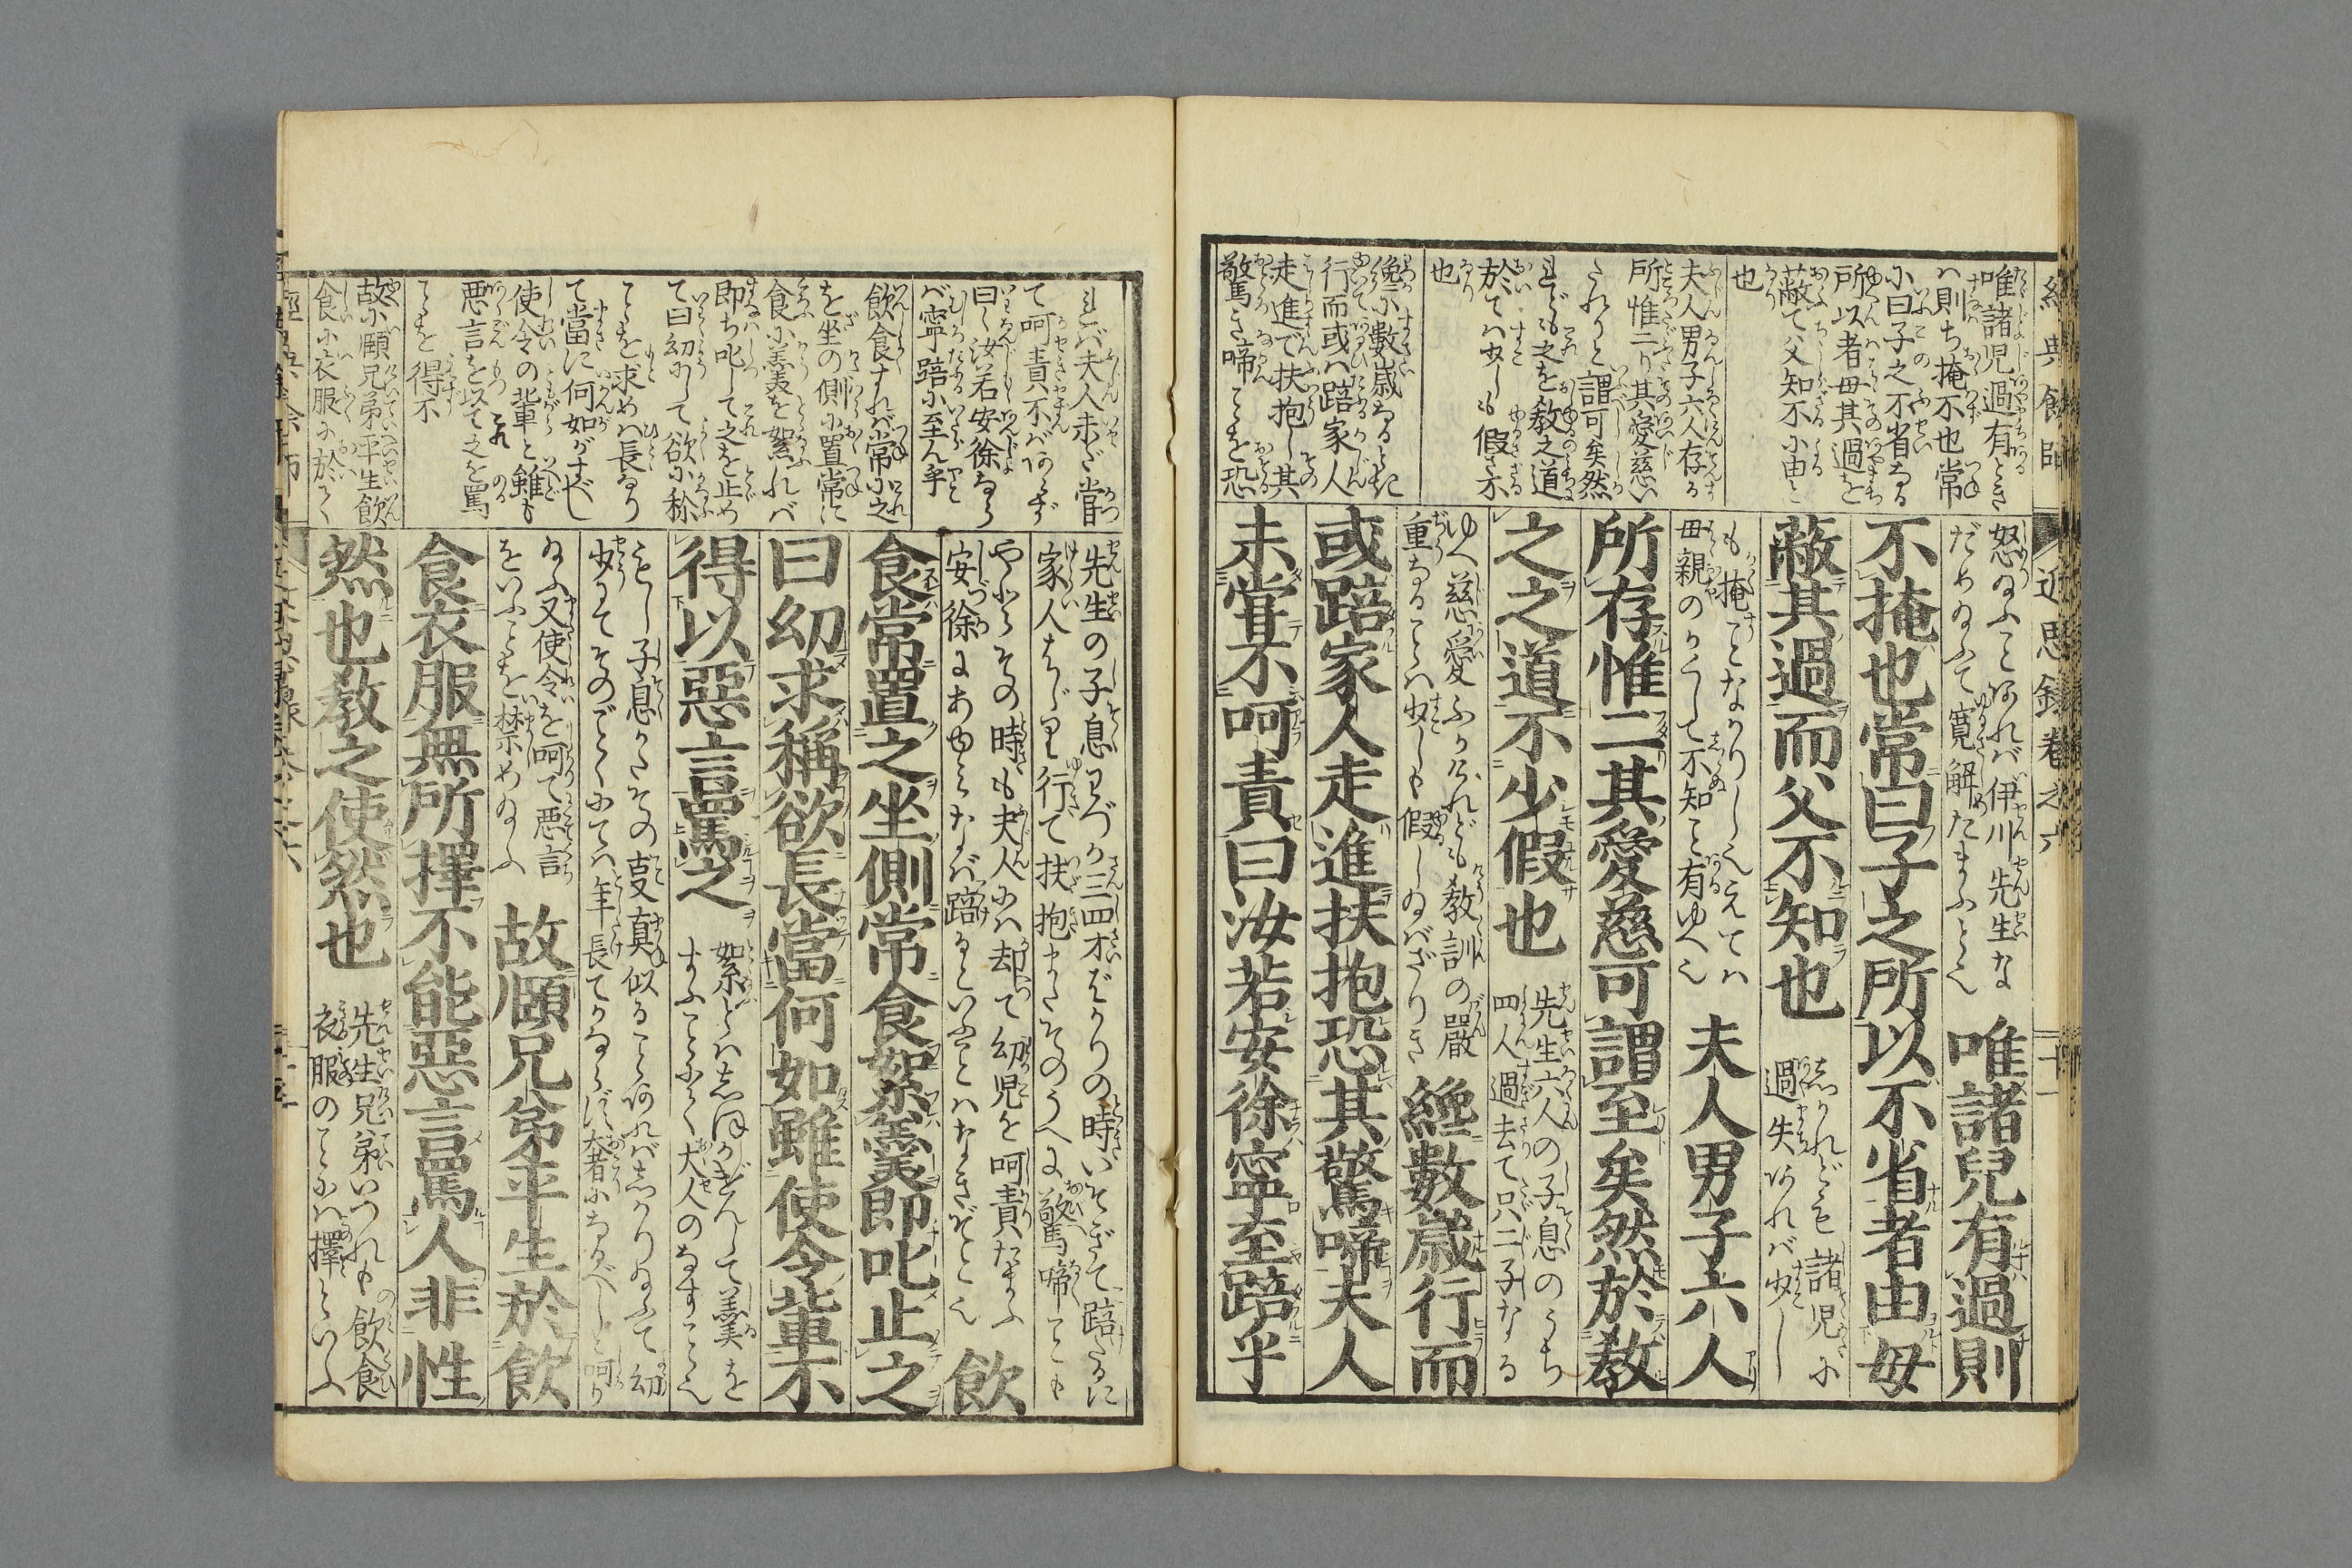 經典餘師
近思録卷之六
十一
唯諸児過有とき
ハ則ち掩不也常
に曰子之不省なる
所以者母其過を
蔽て父知不に由と
也
夫人男子六人存る
所惟二り其愛慈い
たれりと謂可矣然
れども之を教之道
於てハ少しも假さ不
也
纔に數歳なるときに
行而或ハ踣家人
走進で扶抱し其
驚き啼ことを恐
怒ゐふことあれバ伊川先生な
だめゐふて寛解たまふと也
唯諸兒有過則
不掩也常曰子之所以不省者由母
蔽其過而父不知也
しかれども諸児に
過失あれバ少し
も掩ことなかりし也
母親の
して不知こと有ゆへ也
夫人男子六人
所存惟二其愛慈可謂至矣然於教
之之道不少假也
先生六人の子息のうち
四人過去て只二子なる
ゆへ慈愛ふかけれども教訓の嚴
重なることハ少しも假しゐバざりき
纔數歳行而
或踣家人走進扶抱恐其驚啼夫人
未嘗不呵責曰汝若安徐寧至踣乎
れバ夫人未ざ嘗
て呵責不バあらず
曰く汝若安徐なら
バ寧踣に至ん乎
飲食すれバ常に之
を坐の側に置常に
食に羹を絮れバ
即ち叱して之を止め
て曰幼にして欲に称
ことを求めハ長なり
て當に何如がすべし
使令の輩と雖も
悪言を以て之を罵
ことを得不
故に頤兄弟平生飲
食に衣服に於て
先生の子息わづか三四才ばかりの時いそぎて踣たるに
家人はしり行て扶抱またそのうへに驚啼ことも
やあらその時も夫人にハ却て幼児を呵責たまふ
安徐にあゆみなバ踣るといふことハなきぞと也
飲
食常置之坐側常食絮羹即叱止之
曰幼求稱欲長當何如雖使令輩不
得以惡言罵之
絮とハしほかげんして羹を
すふことにて大人のなすこと也
もし子息かたその真似ることあれバしかりゐふて幼
少にてそのごとくにてハ年長てかならず奢になるべしと呵り
ゐふ又使令を呵て悪言
をいふことを禁めゐふ
故頤兄弟平生於飲
食衣服無所擇不能惡言罵人非性
然也教之使然也
先生兄弟いづれも飲食
衣服のことにハ擇といふ